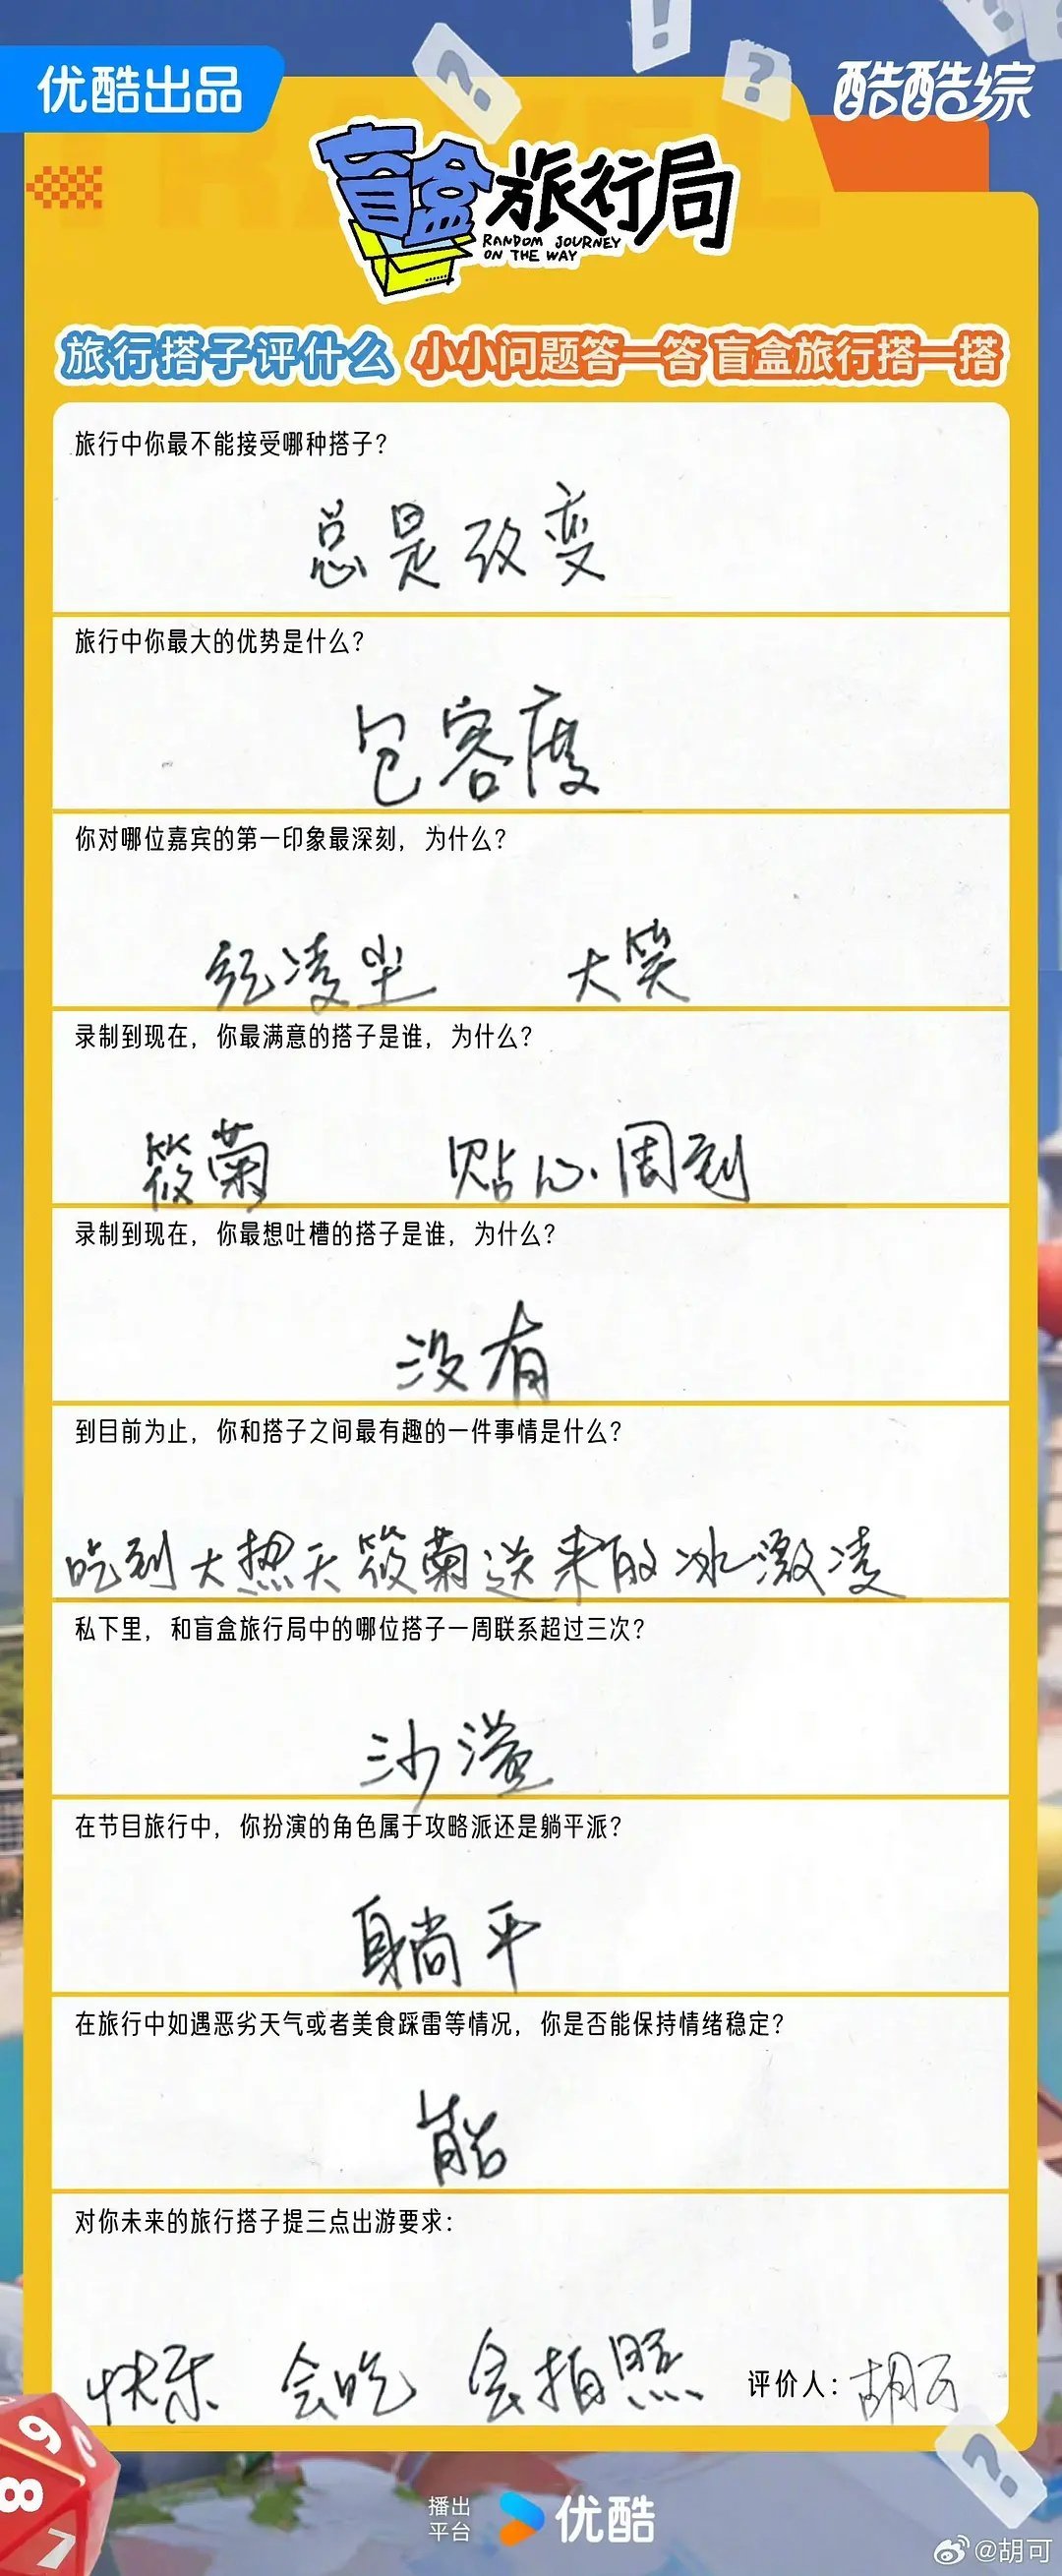 优酷出品
酷酷综
盲盒旅行局
RANDOM JOURNEY
ON THE WAY
旅行搭子评什么 小小问题答一答 盲盒旅行搭一搭
旅行中你最不能接受哪种搭子？
总是改变
旅行中你最大的优势是什么？
包容度
你对哪位嘉宾的第一印象最深刻，为什么？
纪凌尘 大笑
录制到现在，你最满意的搭子是谁，为什么？
筱菊 贴心周到
录制到现在，你最想吐槽的搭子是谁，为什么？
没有
到目前为止，你和搭子之间最有趣的一件事情是什么？
吃到大热天筱菊送来的冰激凌
私下里，和盲盒旅行局中的哪位搭子一周联系超过三次？
沙溢
在节目旅行中，你扮演的角色属于攻略派还是躺平派？
躺平
在旅行中如遇恶劣天气或者美食踩雷等情况，你是否能保持情绪稳定？
能
对你未来的旅行搭子提三点出游要求：
快乐 会吃 会拍照 评价人：胡可
播出
平台
优酷
@胡可